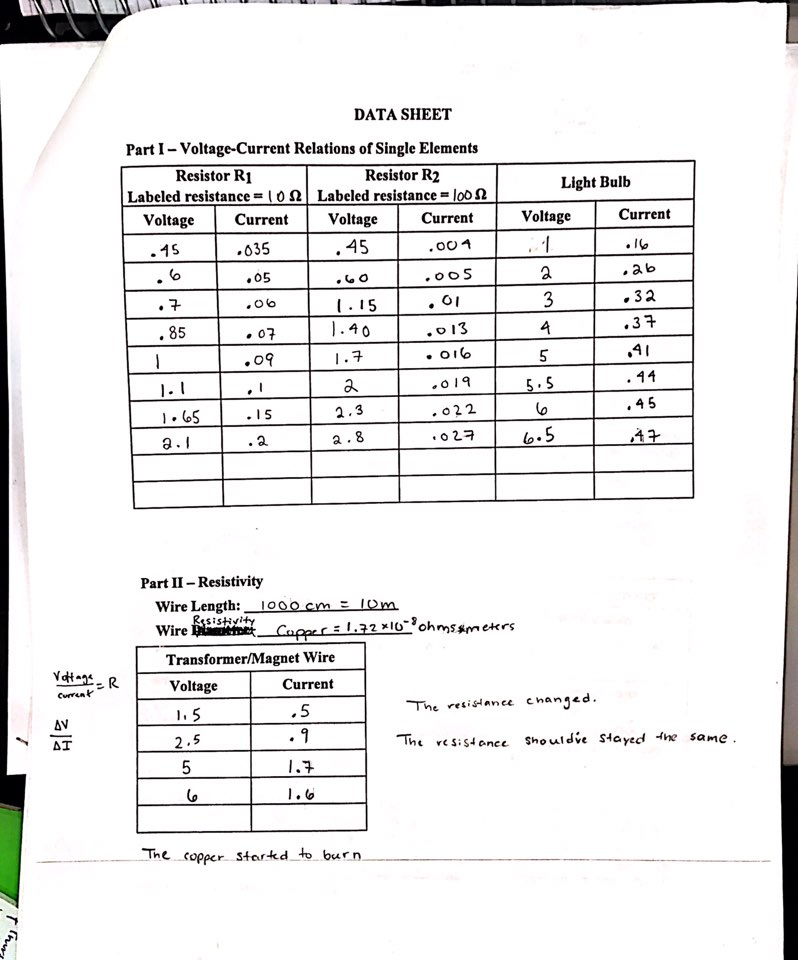 DATA SHEET
Part I – Voltage-Current Relations of Single Elements
Resistor R1 Resistor R2 Light Bulb
Labeled resistance = 10 Ω Labeled resistance = 100 Ω
Voltage Current Voltage Current Voltage Current
.45 .035 .45 .004 1 .16
.6 .05 .60 .005 2 .26
.7 .06 1.15 .01 3 .32
.85 .07 1.40 .013 4 .37
1 .09 1.7 .016 5 .41
1.1 .1 2 .019 5.5 .44
1.65 .15 2.3 .022 6 .45
2.1 .2 2.8 .027 6.5 .47
Part II – Resistivity
Wire Length: 1000 cm = 10m
Wire Resistivity Copper = 1.72 x10⁻⁸ ohms*meters
Transformer/Magnet Wire
Voltage Current
1.5 .5
2.5 .9
5 1.7
6 1.6
Voltage/current = R
ΔV/ΔI
The resistance changed.
The resistance should've stayed the same.
The copper started to burn